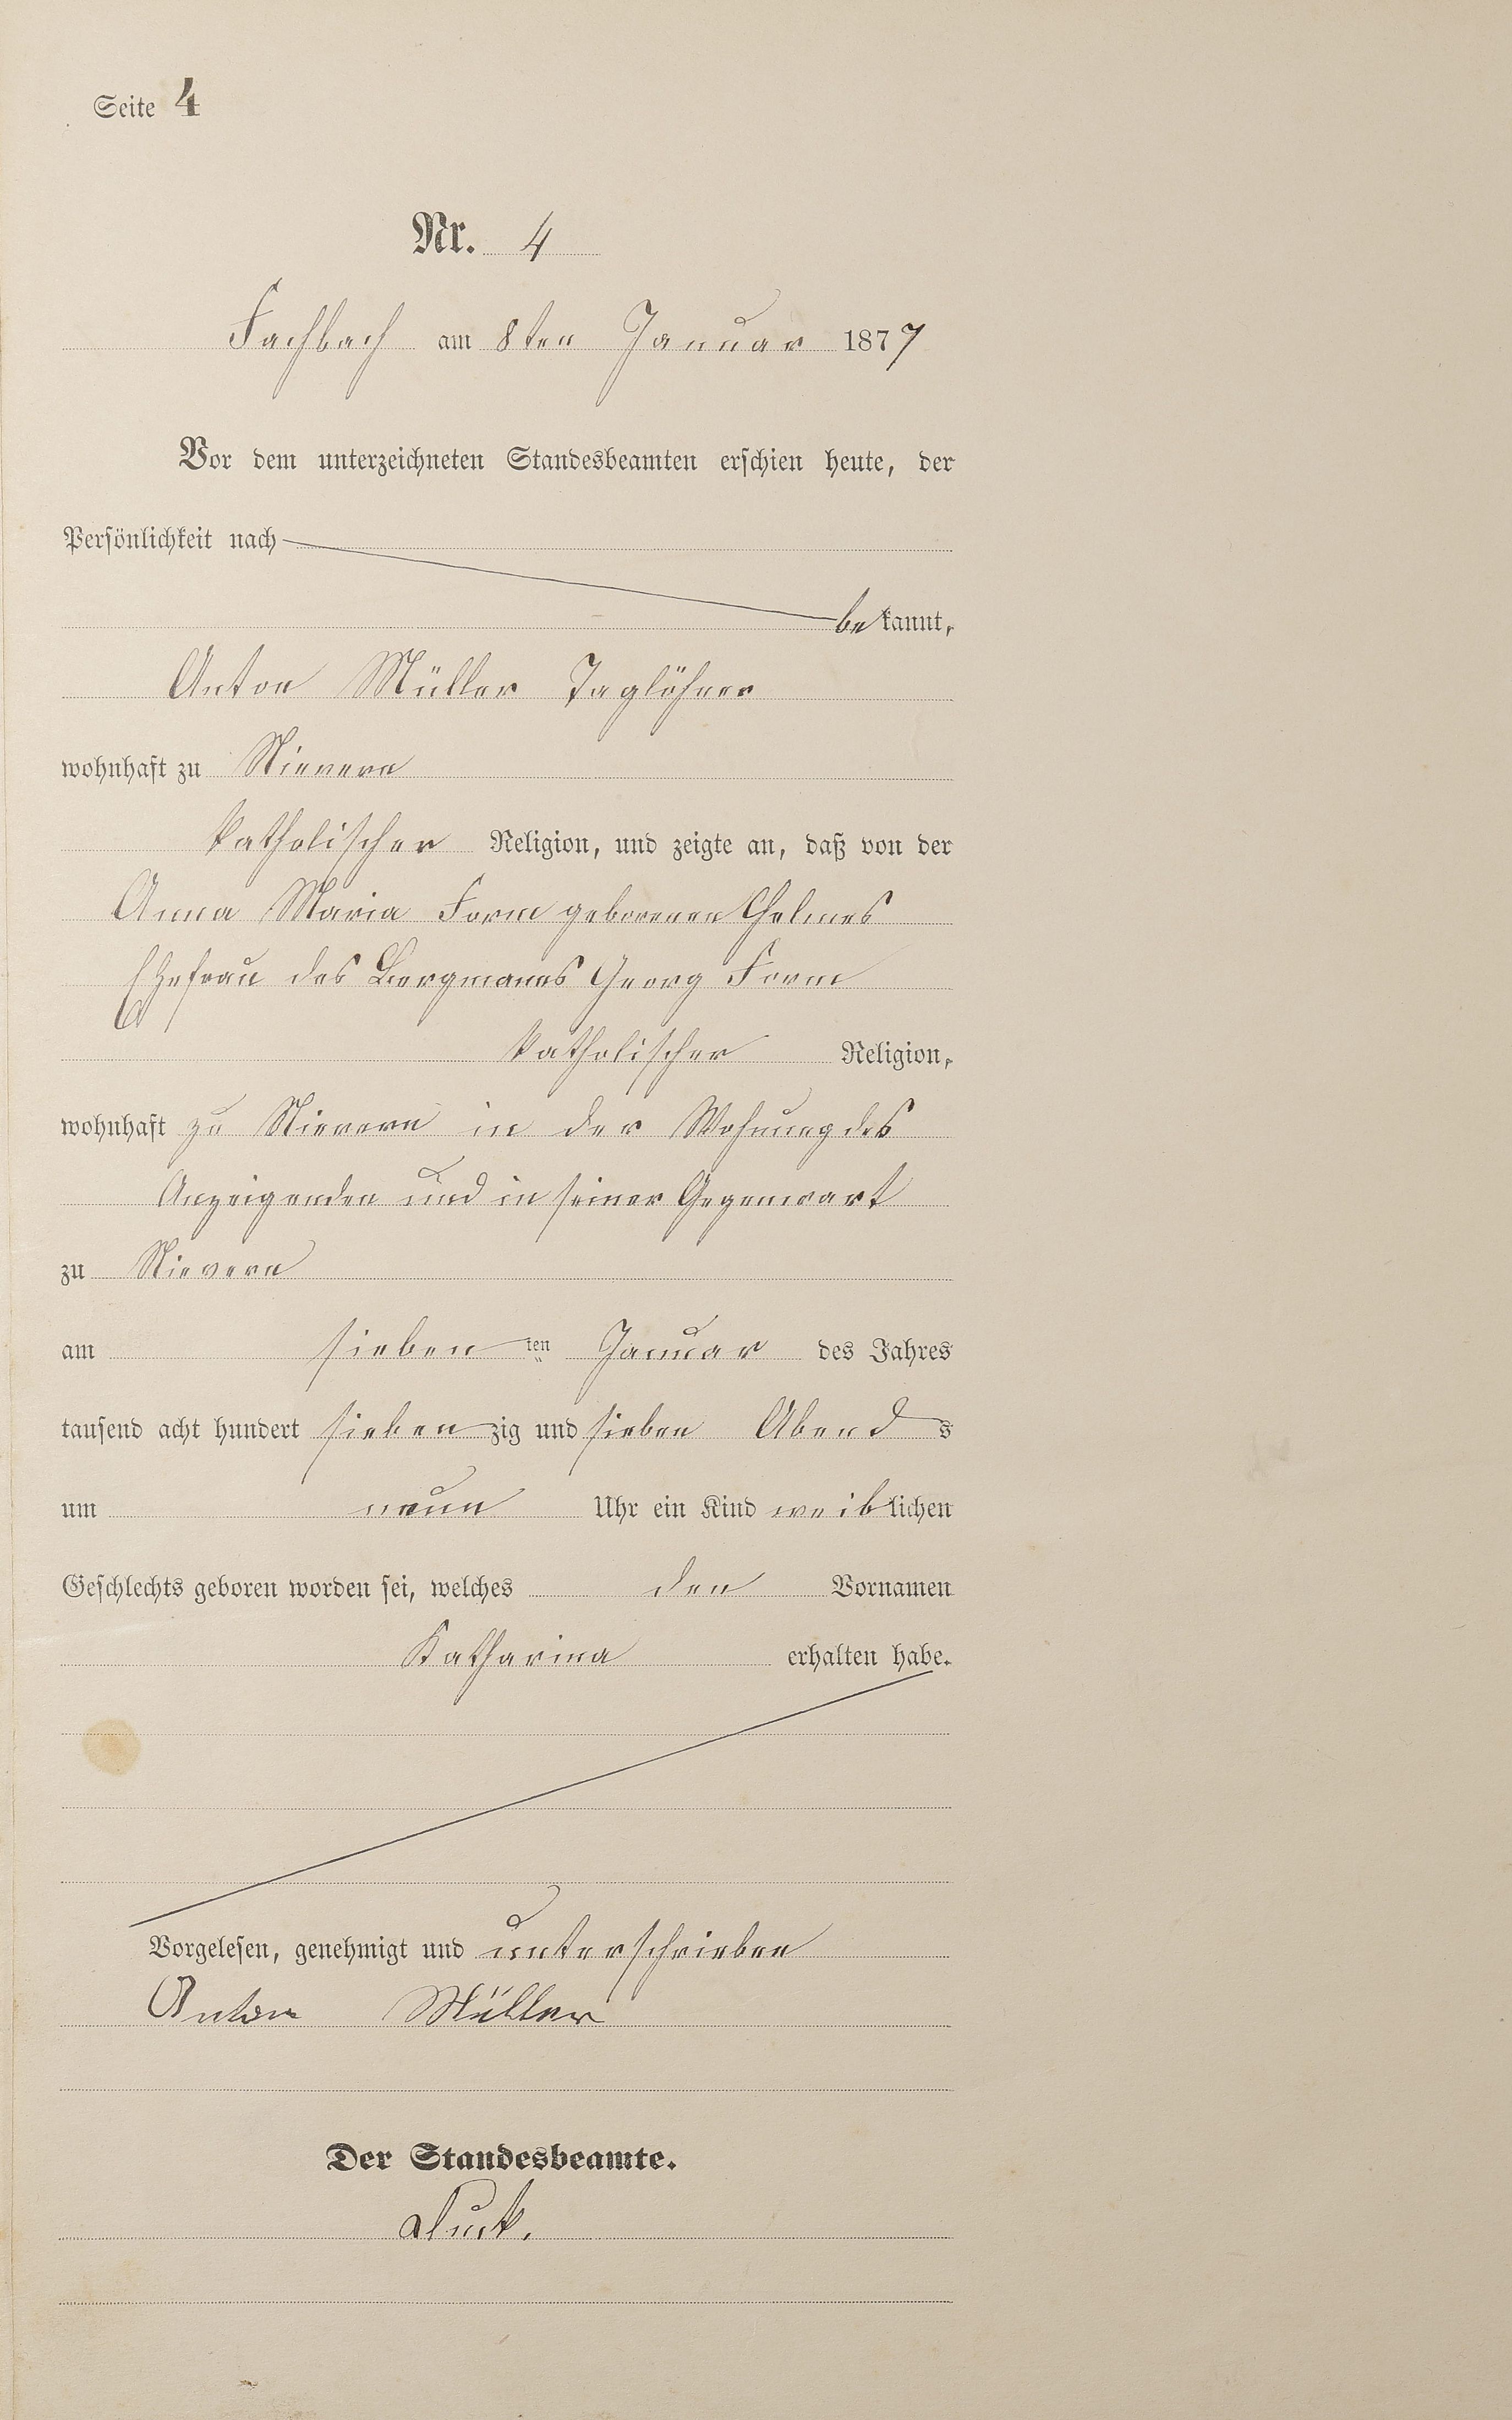 Seite 4
Nr. 4
Fachbach am 8ten Januar 1877
Vor dem unterzeichneten Standesbeamten erschien heute, der
Persönlichkeit nach
bekannt,
Anton Müller Taglöhner
wohnhaft zu Nievern
katholischer Religion, und zeigte an, daß von der
Anna Maria Form geborenen Thelmes
Ehefrau des Bergmanns Georg Form
katholischer Religion,
wohnhaft zu Nievern in der Wohnung des
Anzeigenden und in seiner Gegenwart
zu Nievern
am siebenten Januar des Jahres
tausend acht hundert siebenzig und sieben Abends
um neun Uhr ein Kind weiblichen
Geschlechts geboren worden sei, welches den Vornamen
Katharina erhalten habe.
Vorgelesen, genehmigt und unterschrieben
Anton Müller
Der Standesbeamte.